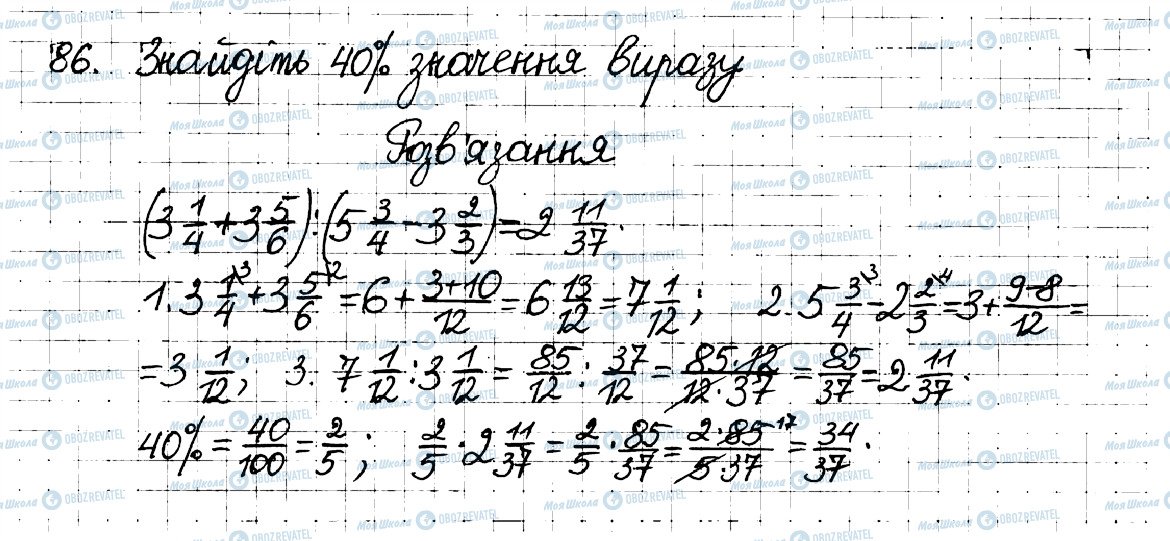 86. Знайдіть 40% значення виразу
Розв'язання
(3 1/4 + 3 5/6) : (5 3/4 - 3 2/3) = 2 11/37.
1. 3 1/4\3 + 3 5/6\2 = 6 + (3+10)/12 = 6 13/12 = 7 1/12; 2. 5 3/4\3 - 2 2/3\4 = 3 + (9-8)/12 =
= 3 1/12; 3. 7 1/12 : 3 1/12 = 85/12 : 37/12 = (85·12)/(12·37) = 85/37 = 2 11/37.
40% = 40/100 = 2/5; 2/5 · 2 11/37 = 2/5 · 85/37 = (2·85 17)/(5·37) = 34/37.
МояШкола OBOZREVATEL